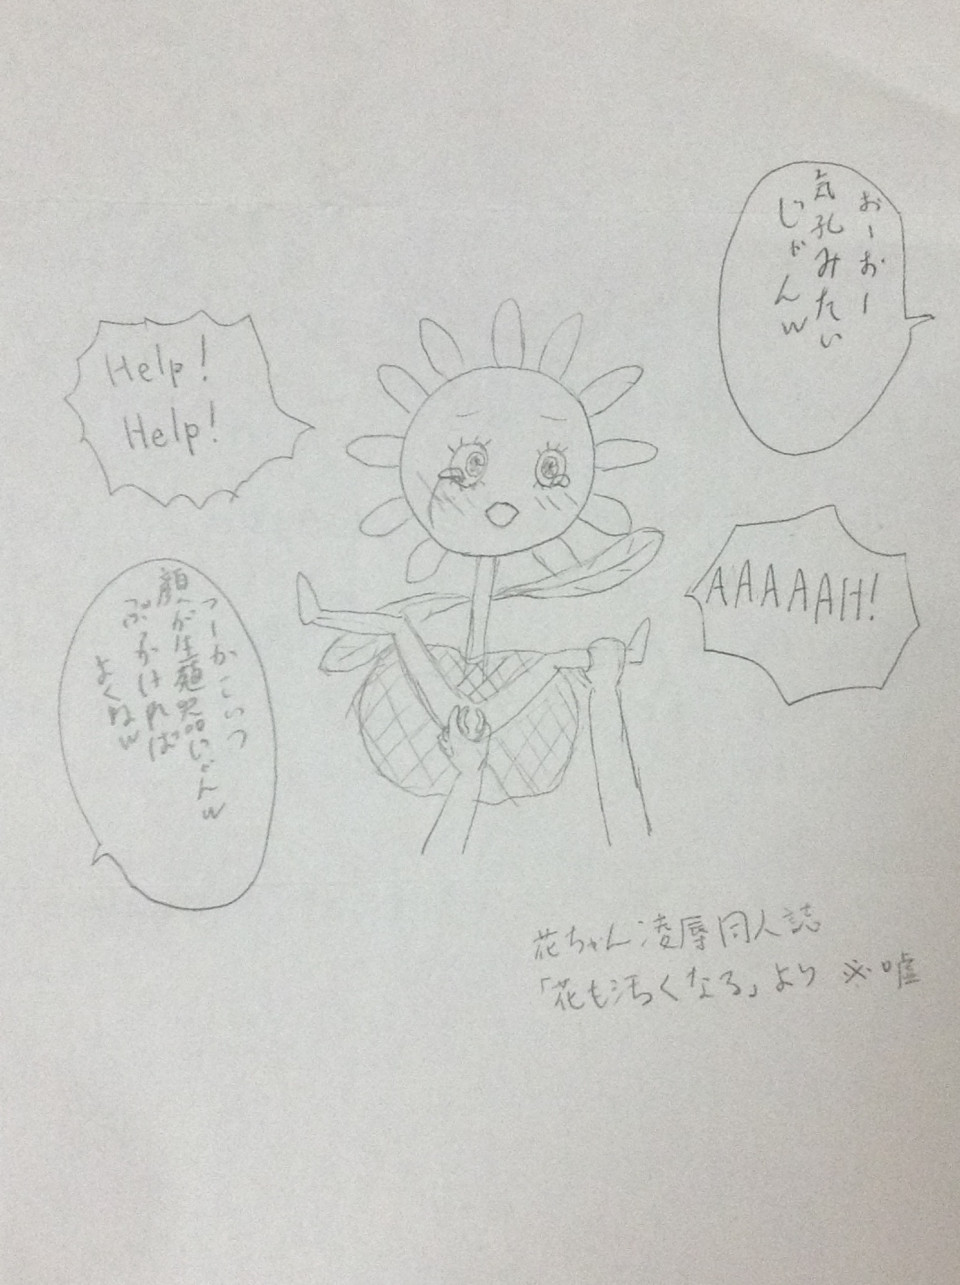 おーおー
気孔みたい
じゃんw
Help!
Help!
AAAAAH!
つーかこいつ
顔が生殖器じゃんw
ぶっかければ
よくねw
花ちゃん凌辱同人誌
「花も汚くなる」より ※嘘